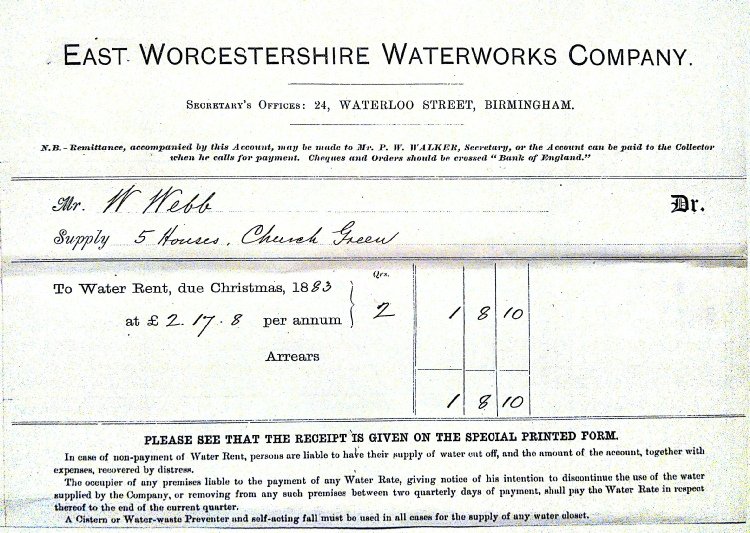 EAST WORCESTERSHIRE WATERWORKS COMPANY.
SECRETARY'S OFFICES: 24, WATERLOO STREET, BIRMINGHAM.
N.B.-Remittance, accompanied by this Account, may be made to Mr. P. W. WALKER, Secretary, or the Account can be paid to the Collector
when he calls for payment. Cheques and Orders should be crossed "Bank of England."
Mr. W Webb Dr.
Supply 5 Houses, Church Green
Qrs.
To Water Rent, due Christmas, 1883
at £ 2. 17. 8 per annum 2 1 8 10
Arrears
1 8 10
PLEASE SEE THAT THE RECEIPT IS GIVEN ON THE SPECIAL PRINTED FORM.
In case of non-payment of Water Rent, persons are liable to have their supply of water cut off, and the amount of the account, together with
expenses, recovered by distress.
The occupier of any premises liable to the payment of any Water Rate, giving notice of his intention to discontinue the use of the water
supplied by the Company, or removing from any such premises between two quarterly days of payment, shall pay the Water Rate in respect
thereof to the end of the current quarter.
A Cistern or Water-waste Preventer and self-acting fall must be used in all cases for the supply of any water closet.